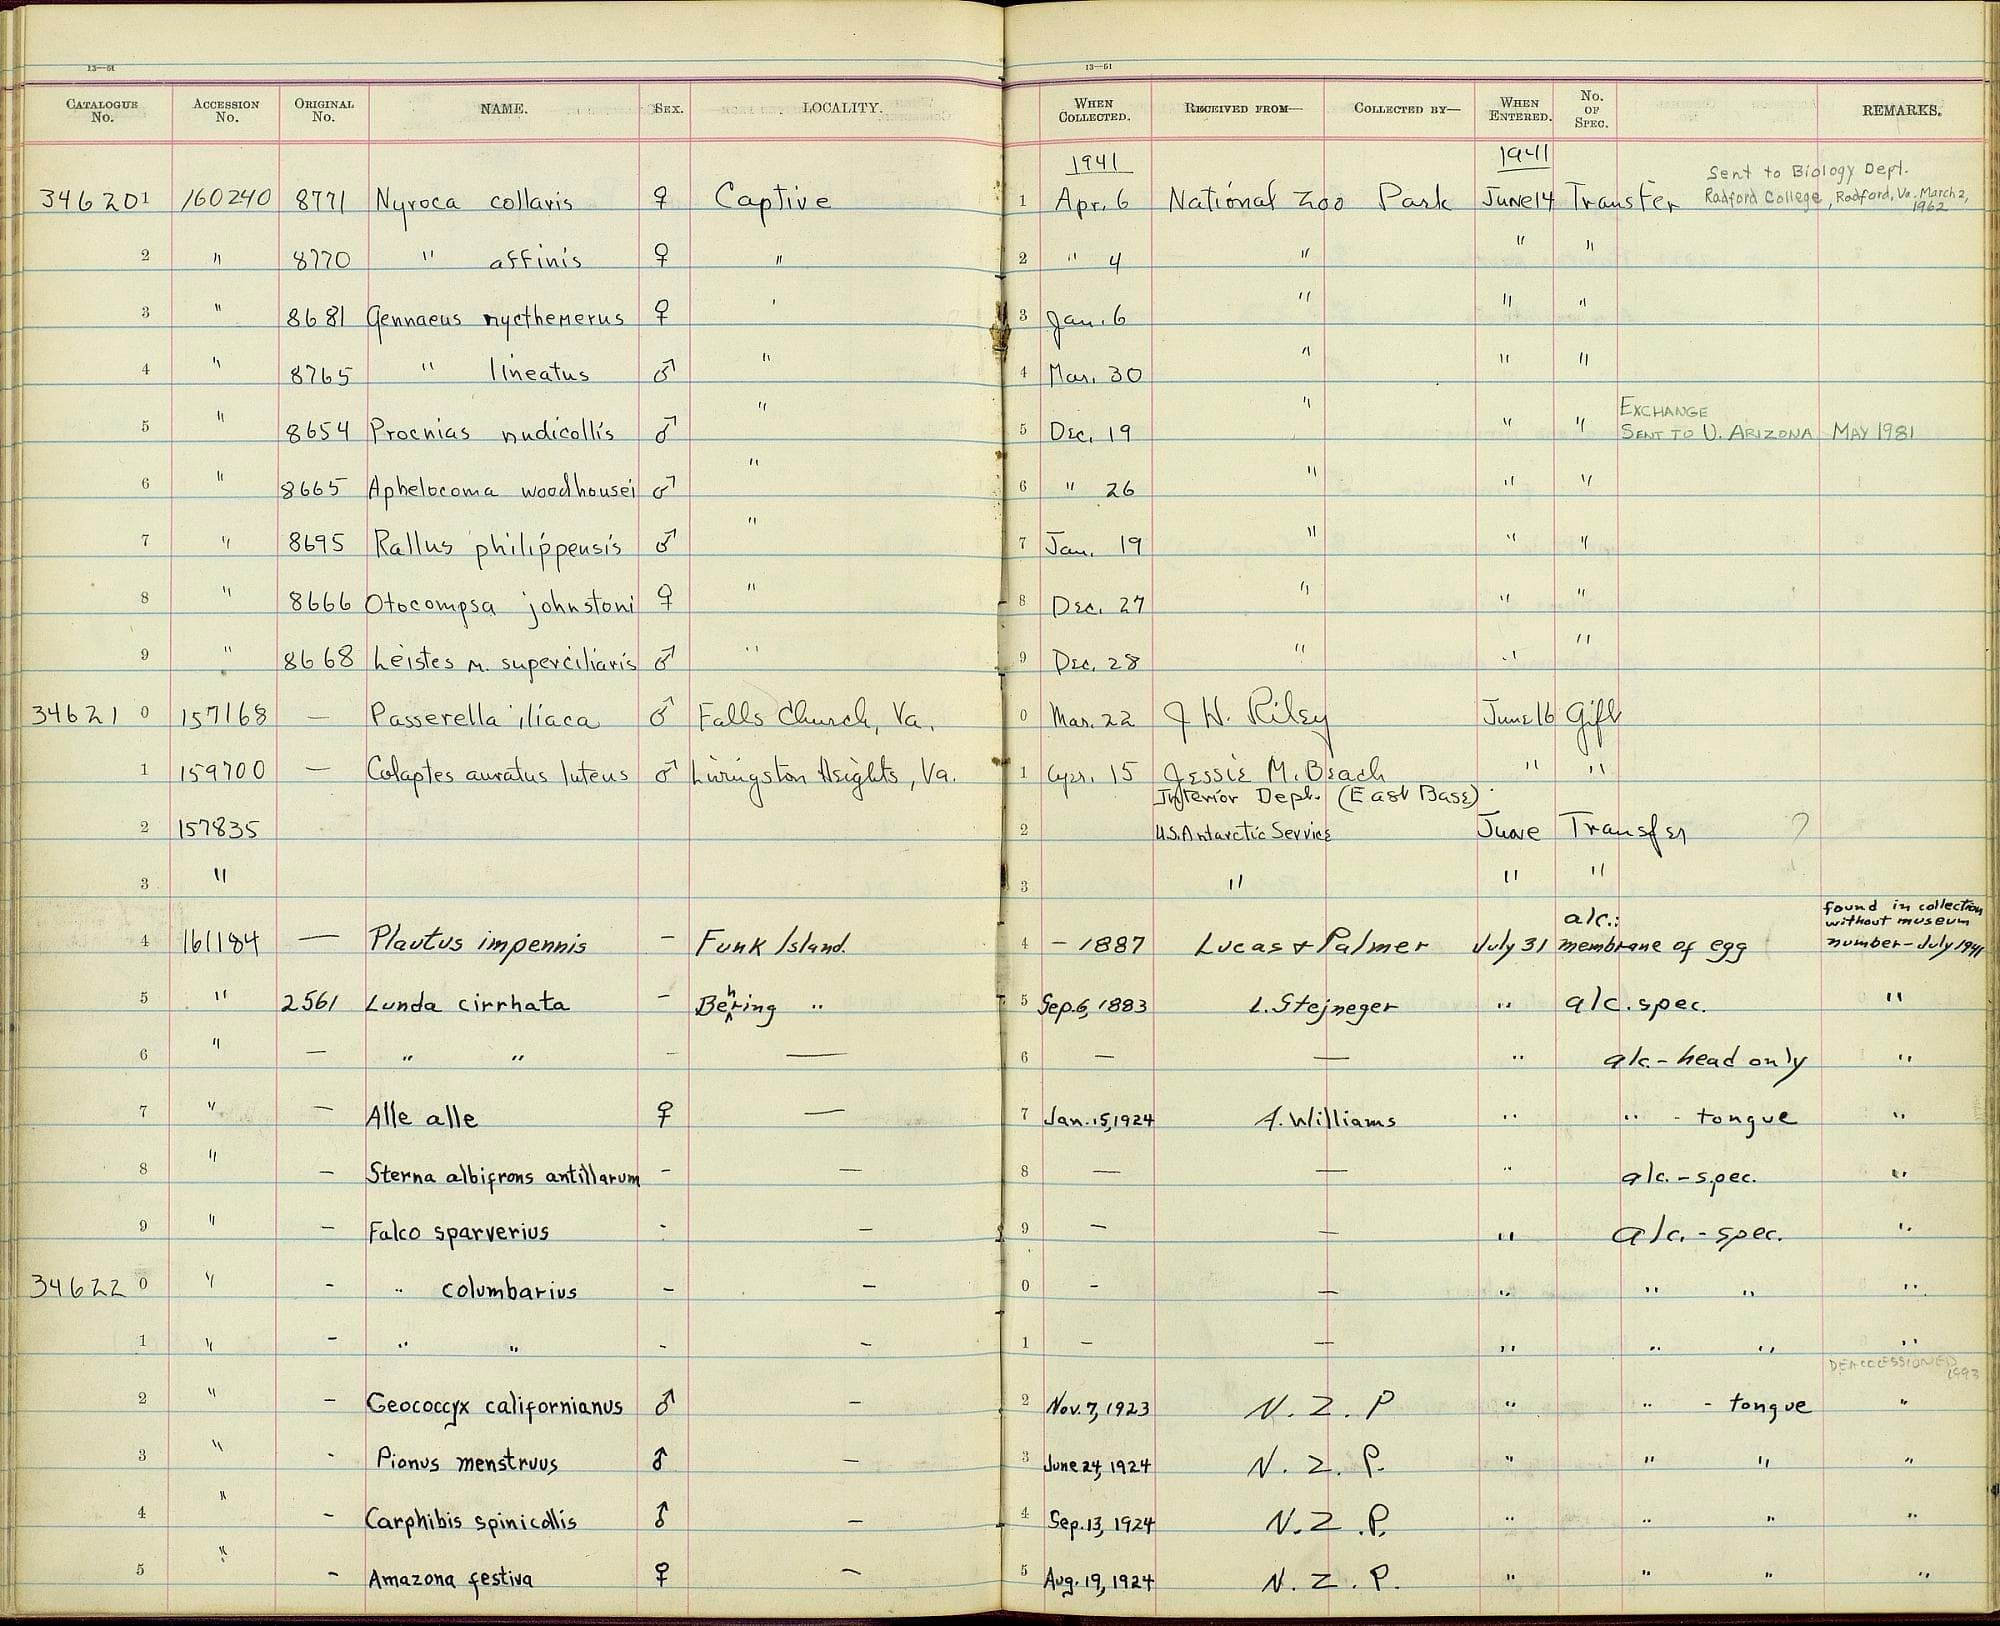 13—51
CATALOGUE No. ACCESSION No. ORIGINAL No. NAME. SEX. LOCALITY.
34620 1 160240 8771 Nyroca collaris ♀ Captive
2 " 8770 " affinis ♀ "
3 " 8681 Gennaeus nycthemerus ♀ '
4 " 8765 " lineatus ♂ "
5 " 8654 Procnias nudicollis ♂ "
6 " 8665 Aphelocoma woodhousei ♂ "
7 " 8695 Rallus philippensis ♂ "
8 " 8666 Otocompsa johnstoni ♀ "
9 " 8668 Leistes m. superciliaris ♂ "
34621 0 157168 — Passerella iliaca ♂ Falls Church, Va.
1 159700 — Colaptes auratus luteus ♂ Livingston Heights, Va.
2 157835
3 "
4 161184 — Plautus impennis - Funk Island.
5 " 2561 Lunda cirrhata - Behring "
6 " — " " - —
7 " — Alle alle ♀ —
8 " - Sterna albifrons antillarum - —
9 " - Falco sparverius - -
34622 0 " - " columbarius - -
1 " - " " - -
2 " - Geococcyx californianus ♂ -
3 " - Pionus menstruus ♂ -
4 " - Carphibis spinicollis ♂ -
5 " - Amazona festiva ♀ -
13—51
WHEN COLLECTED. RECEIVED FROM— COLLECTED BY— WHEN ENTERED. No. OF SPEC. REMARKS.
1941 1941
Sent to Biology Dept.
Radford College, Radford, Va. March 2, 1962
1 Apr. 6 National Zoo Park June 14 Transfer
2 " 4 " " "
3 Jan. 6 " " "
4 Mar. 30 " " "
EXCHANGE
5 Dec. 19 " " " SENT TO U. ARIZONA MAY 1981
6 " 26 " " "
7 Jan. 19 " " "
8 Dec. 27 " " "
9 Dec. 28 " " "
0 Mar. 22 J H. Riley June 16 Gift
1 Apr. 15 Jessie M. Beach " "
Interior Dept. (East Base)
2 U.S. Antarctic Service June Transfer ?
3 " " "
alc.: found in collection
without museum
4 - 1887 Lucas & Palmer July 31 membrane of egg number - July 1941
5 Sep. 6, 1883 L. Stejneger " alc. spec. "
6 — — " alc. - head only "
7 Jan. 15, 1924 A. Williams " " - tongue "
8 — — " alc. - spec. "
9 - - " alc. - spec. "
0 - — " " " "
1 - — " " " "
DEACCESSIONED
1993
2 Nov. 7, 1923 N. Z. P " " - tongue "
3 June 24, 1924 N. Z. P. " " " "
4 Sep. 13, 1924 N. Z. P. " " " "
5 Aug. 19, 1924 N. Z. P. " " " "